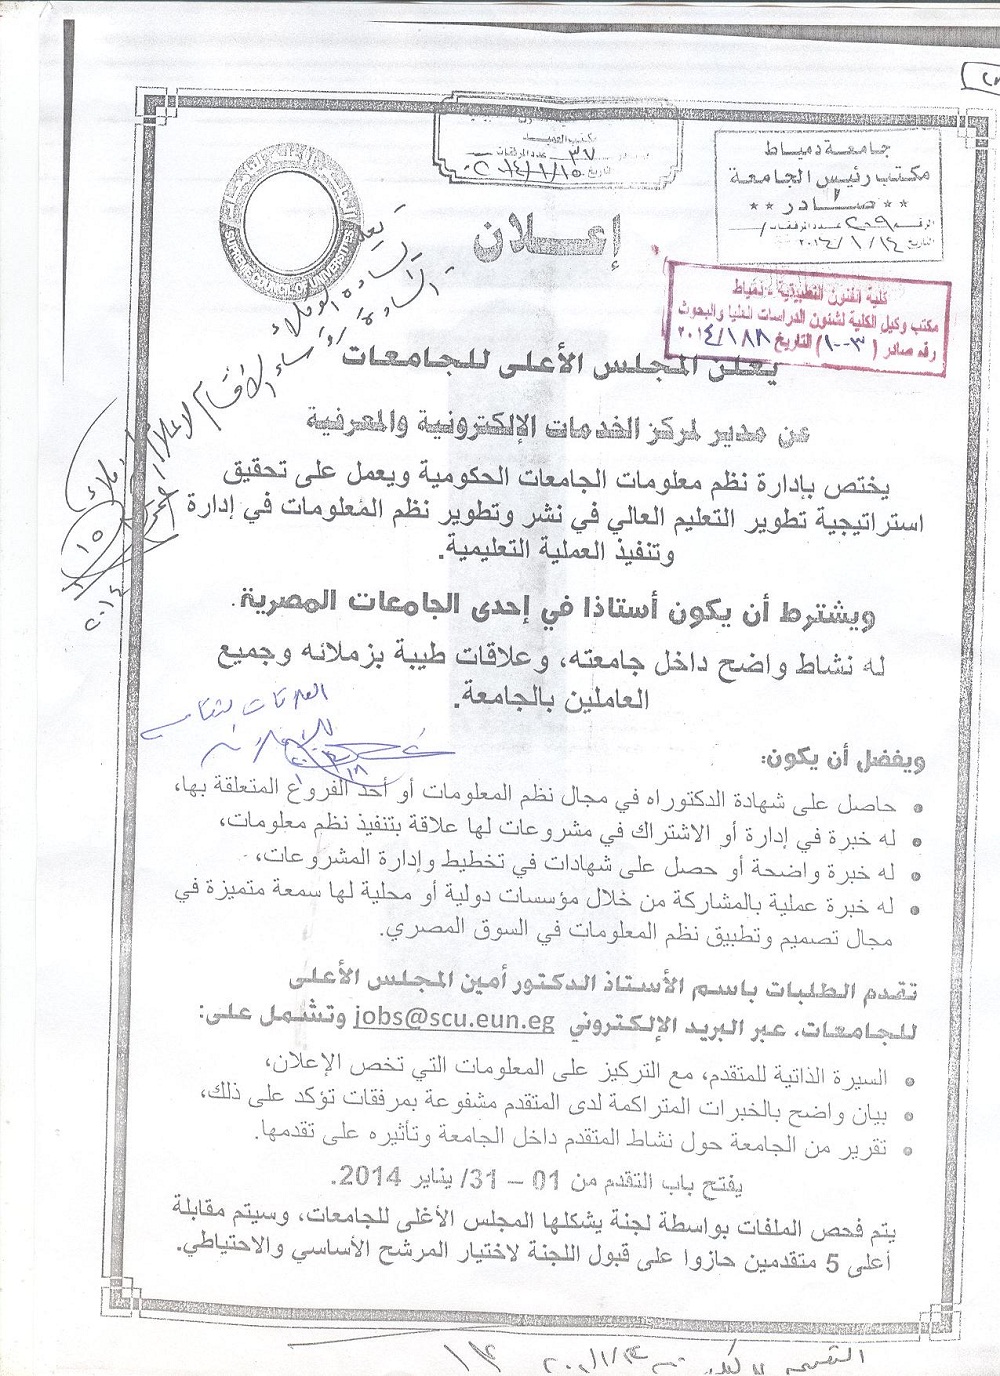 جامعة دمياط
مكتب رئيس الجامعة
** صادر **
مكتب العميد
٣٧
SUPREME COUNCIL OF UNIVERSITIES
إعلان
كلية الفنون التطبيقية - دمياط
مكتب وكيل الكلية لشئون الدراسات العليا والبحوث
رقم صادر ( ١٠٠٣ ) التاريخ
يعلن المجلس الأعلى للجامعات
عن مدير لمركز الخدمات الإلكترونية والمعرفية
يختص بإدارة نظم معلومات الجامعات الحكومية ويعمل على تحقيق
استراتيجية تطوير التعليم العالي في نشر وتطوير نظم المعلومات في إدارة
وتنفيذ العملية التعليمية.
ويشترط أن يكون أستاذا في إحدى الجامعات المصرية.
له نشاط واضح داخل جامعته، وعلاقات طيبة بزملائه وجميع
العاملين بالجامعة.
ويفضل أن يكون:
• حاصل على شهادة الدكتوراه في مجال نظم المعلومات أو أحد الفروع المتعلقة بها،
• له خبرة في إدارة أو الاشتراك في مشروعات لها علاقة بتنفيذ نظم معلومات،
• له خبرة واضحة أو حصل على شهادات في تخطيط وإدارة المشروعات،
• له خبرة عملية بالمشاركة من خلال مؤسسات دولية أو محلية لها سمعة متميزة في
مجال تصميم وتطبيق نظم المعلومات في السوق المصري.
تقدم الطلبات باسم الأستاذ الدكتور أمين المجلس الأعلى
للجامعات، عبر البريد الإلكتروني jobs@scu.eun.eg وتشمل على:
• السيرة الذاتية للمتقدم، مع التركيز على المعلومات التي تخص الإعلان،
• بيان واضح بالخبرات المتراكمة لدى المتقدم مشفوعة بمرفقات تؤكد على ذلك،
• تقرير من الجامعة حول نشاط المتقدم داخل الجامعة وتأثيره على تقدمها.
يفتح باب التقدم من 01 – 31/ يناير 2014.
يتم فحص الملفات بواسطة لجنة يشكلها المجلس الأعلى للجامعات، وسيتم مقابلة
أعلى 5 متقدمين حازوا على قبول اللجنة لاختيار المرشح الأساسي والاحتياطي.